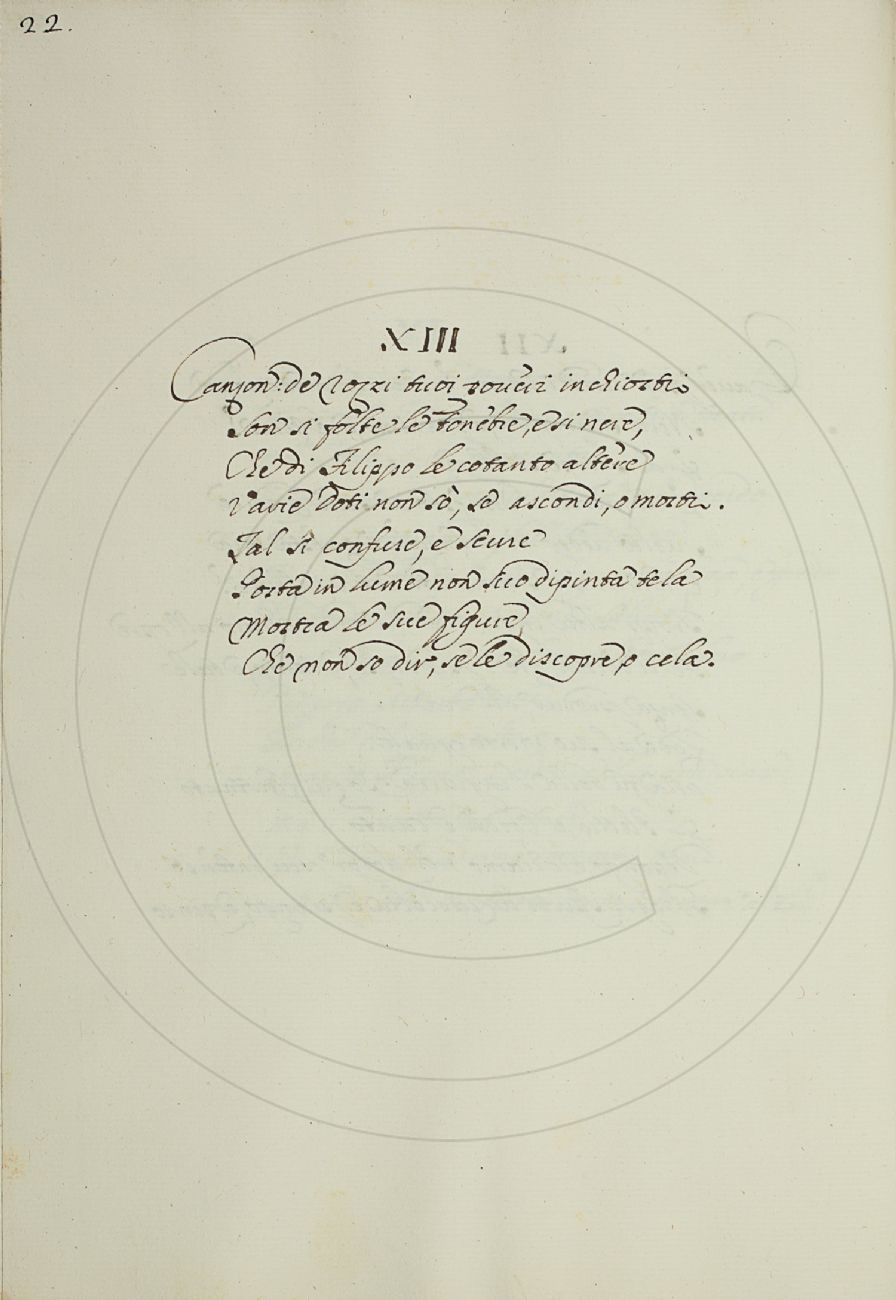 22.
XIII
Canzon: de rozzi tuoi roveri inchiostri
Son si folte le tenebre, e si nere,
Che di Filippo le cotanto altere
Varie Doti non sò, se ascondi, o mostri.
Tal si confuse, e scure
Posta in lume non suo dipinta tela
Mostra le sue figure,
Che non so dir, se le discopre, o cela.